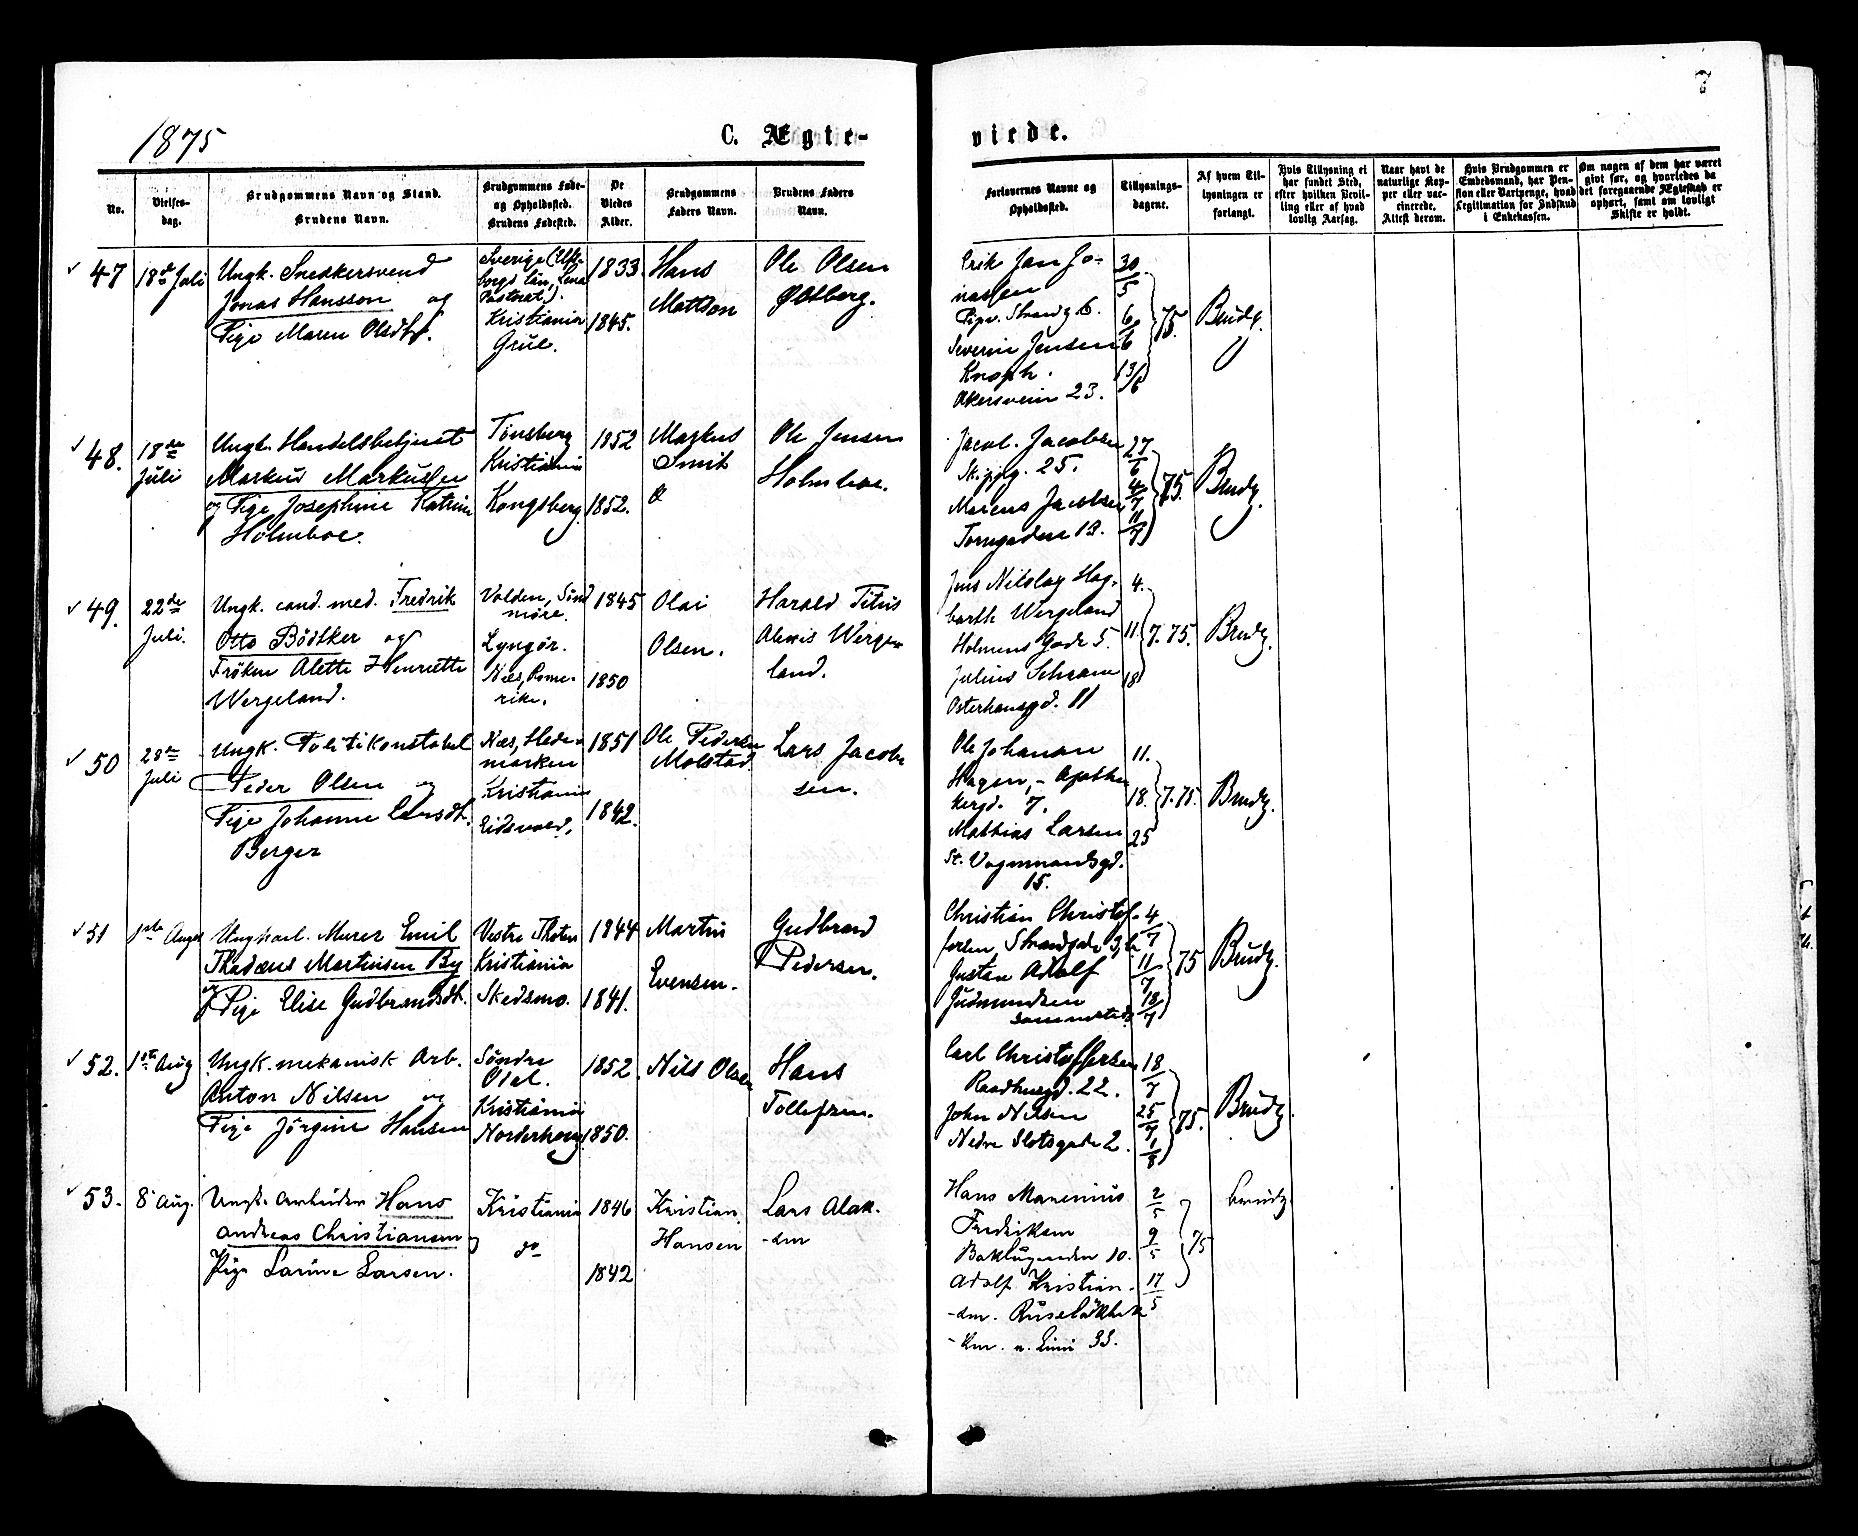 1875
C. Ægte-
viede.
7
No.
Vielses-
dag.
Brudgommens Navn og Stand.
Brudens Navn.
Brudgommens Føde-
og Opholdssted.
Brudens Fødested.
De
Viedes
Alder.
Brudgommens
Faders Navn.
Brudens Faders
Navn.
Forlovernes Navne og
Opholdssted.
Tillysnings-
dagene.
Af hvem Til-
lysningen er
forlangt.
Hvis Tillysning ei
har fundet Sted,
efter hvilken Bevil-
ling eller af hvad
lovlig Aarsag.
Naar havt de
naturlige Kop-
per eller vac-
cinerede,
Attest derom.
Hvis Brudgommen er
Embedsmand, har Pen-
sion eller Vartpenge, hvad
Legitimation for Indskud
i Enkekassen.
Om nogen af dem har været
gift før, og hvorledes da
det foregaaende Ægteskab er
ophørt, samt om lovligt
Skifte er holdt.
47
18de Juli
Ungk. Snedkersvend
Jonas Hansson og
Pige Maren Olsdtr.
Sverige (Elfs-
borgs Län,
Pastorat).
Kristiania
Grue.
1833
1845.
Hans
Mattson
Ole Olsen
Østberg.
Erik Jan Jo-
nassen
Piperv. Strandg 6.
Severin Jensen
Knoph.
Akersveien 23.
30/5
6/6
13/6
75.
Brudg.
48.
18de
Juli
Ungk. Handelsbetjent
Markus Markussen
og Pige Josephine Katrine
Holmboe.
Tønsberg
Kristiania
Kongsberg
1852
1852.
Markus
Smit
Ole Jensen
Holmboe.
Jacob Jacobsen
Skippg. 25.
Marius Jacobsen
Torvgaden 13.
27/6
4/7
11/7
75.
Brudg.
49.
22de
Juli.
Ungk. cand. med. Fredrik
Otto Bödtker og
Frøken Alette Henriette
Wergeland.
Volden, Sönd
möre.
Lyngör.
Næs, Rome-
rike.
1845
1850
Olai
Olsen.
Harald Titus
Alexis Werge-
land.
Jens Nilslay Hag-
barth Wergeland
Holmens Gade 5.
Julius Schram
Osterhausgd. 11
4.
11.
18
7.75.
Brudg.
50
28de
Juli
Ungk. Politikonstabel
Peder Olsen og
Pige Johanne Larsdt.
Berger
Næs, Hede-
marken
Kristiania
Eidsvold.
1851
1842.
Ole Pedersen
Molstad.
Lars Jacob-
sen.
Ole Johanan
Hagen, - Apothe-
kergd. 7.
Mathias Larsen
St. Vognmandsgd.
15.
11.
18.
25
7.75.
Brudg.
51
1ste August
Ungkarl. Murer Emil
Thadæus Martinsen By
og Pige Elise Gudbrandsdt.
Vestre Thoten
Kristiania
Skedsmo.
1844
1841.
Martin
Evensen.
Gudbrand
Pedersen.
Christian Christof-
fersen, Strandgade 3, b
Gustav Adolf
Gudmundsen
4/7
11/7
18/7
75
Brudg.
52.
1ste Aug
Ungk. mekanisk Arb.
Anton Nilsen og
Pige Jörgine Hansen
Söndre
Odal.
Kristiania
Norderhoug
1852.
1850.
Nils Olsen
Hans
Tollefsen.
Carl Christoffersen
Raadhusgd. 22.
John Nilsen
Nedre Slotsgade 2.
18/7
25/7
1/8
75.
Brudg.
53.
8 Aug.
Ungk. Arbeider Hans
Andreas Christiansen og
Pige Larine Larsen.
Kristiania
do
1846
1842
Kristian
Hansen
Lars Alex.
-sen
Hans Marenius
Fredriksen
Bakkegaden 10.
Adolf Kristian-
-sen. Ruseløkbak
-ken. n. Linie 33.
2/5
9/5
17/5
75
Brudg.